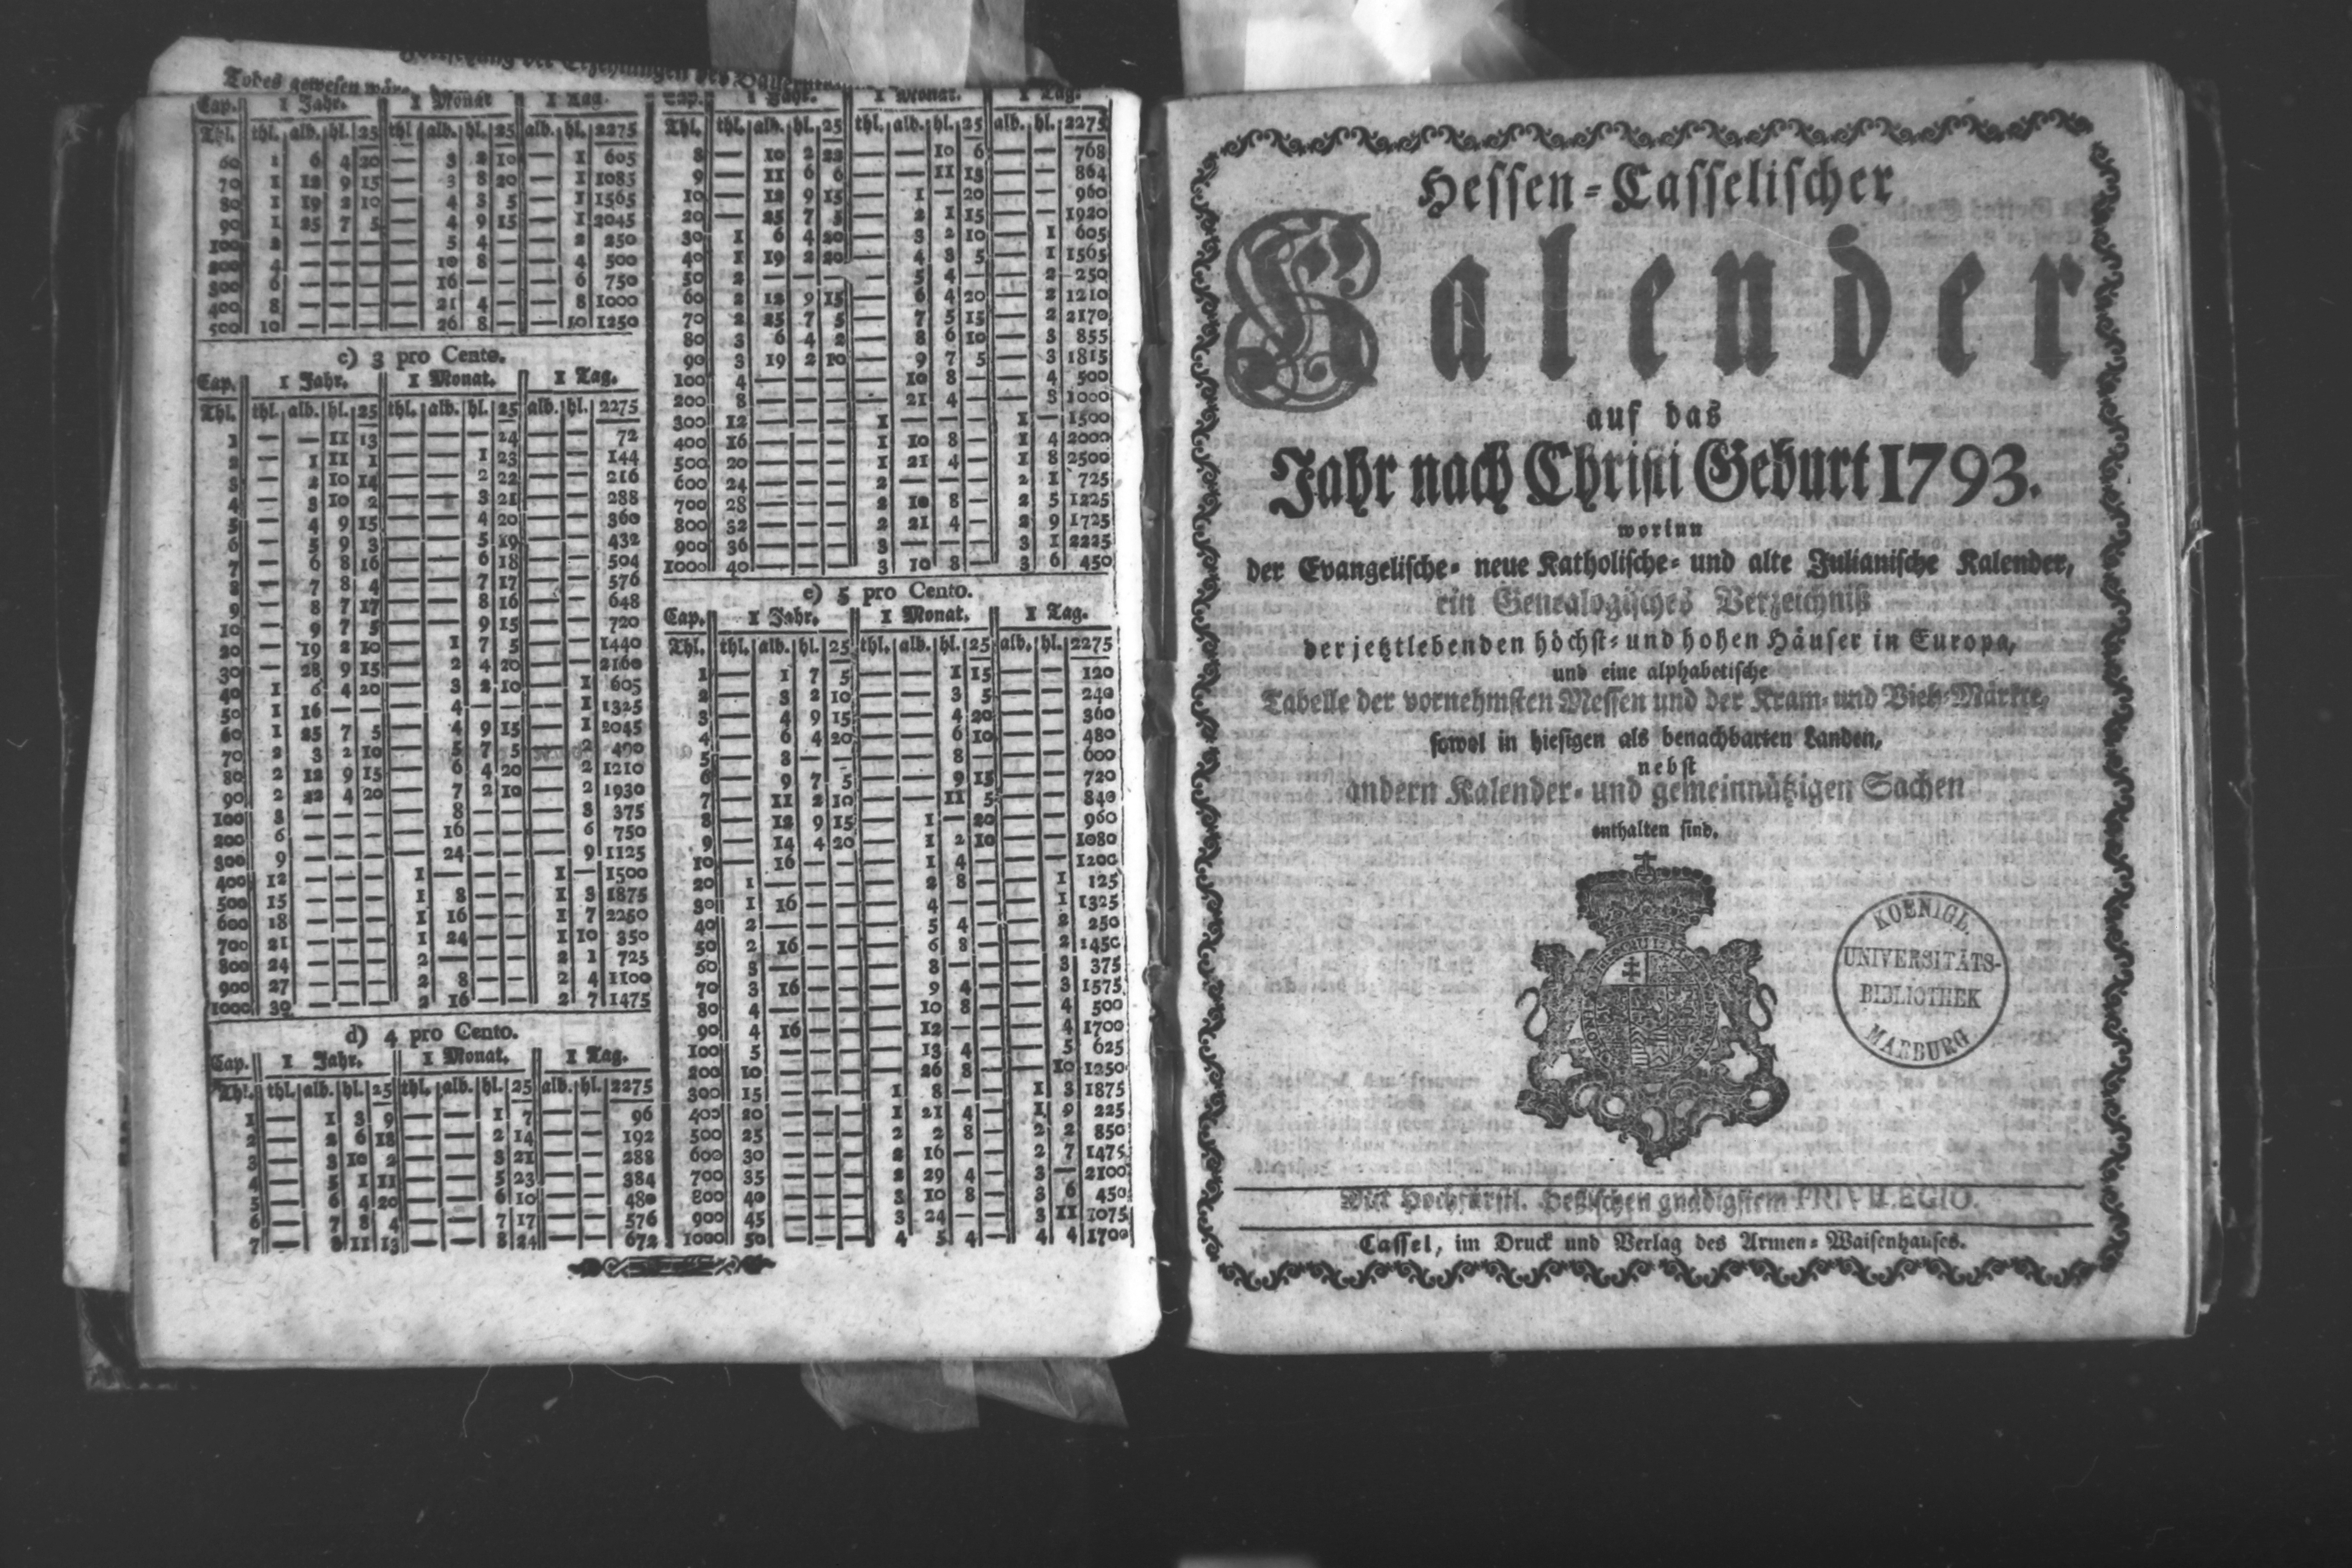 Todes gewesen wäre
Cap. 1 Jahr. 1 Monat 1 Tag.
Thl. thl. alb. hl. 25 thl. alb. hl. 25 alb. hl. 2275
60 1 6 4 20 — 3 2 10 — 1 605
70 1 12 9 15 — 3 8 20 — 1 1085
80 1 19 2 10 — 4 3 5 — 1 1565
90 1 25 7 5 — 4 9 15 — 1 2045
100 2 — — — — 5 4 — — 2 250
200 4 — — — — 10 8 — — 4 500
300 6 — — — — 16 — — — 6 750
400 8 — — — — 21 4 — — 8 1000
500 10 — — — — 26 8 — — 10 1250
c) 3 pro Cento.
Cap. 1 Jahr. 1 Monat. 1 Tag.
Thl. thl. alb. hl. 25 thl. alb. hl. 25 alb. hl. 2275
1 — — 11 13 — — — 24 — — 72
2 — 1 11 1 — — 1 23 — — 144
3 — 2 10 14 — — 2 22 — — 216
4 — 3 10 2 — — 3 21 — — 288
5 — 4 9 15 — — 4 20 — — 360
6 — 5 9 3 — — 5 19 — — 432
7 — 6 8 16 — — 6 18 — — 504
8 — 7 8 4 — — 7 17 — — 576
9 — 8 7 17 — — 8 16 — — 648
10 — 9 7 5 — — 9 15 — — 720
20 — 19 2 10 — 1 7 5 — — 1440
30 — 28 9 15 — 2 4 20 — — 2160
40 1 6 4 20 — 3 2 10 — 1 605
50 1 16 — — — 4 — — — 1 1325
60 1 25 7 5 — 4 9 15 — 1 2045
70 2 3 2 10 — 5 7 5 — 2 490
80 2 12 9 15 — 6 4 20 — 2 1210
90 2 22 4 20 — 7 2 10 — 2 1930
100 3 — — — — 8 — — — 3 375
200 6 — — — — 16 — — — 6 750
300 9 — — — — 24 — — — 9 1125
400 12 — — — 1 — — — 1 — 1500
500 15 — — — 1 8 — — 1 3 1875
600 18 — — — 1 16 — — 1 7 2250
700 21 — — — 1 24 — — 1 10 350
800 24 — — — 2 — — — 2 1 725
900 27 — — — 2 8 — — 2 4 1100
1000 30 — — — 2 16 — — 2 7 1475
d) 4 pro Cento.
Cap. 1 Jahr. 1 Monat. 1 Tag.
Thl. thl. alb. hl. 25 thl. alb. hl. 25 alb. hl. 2275
1 — 1 3 9 — — 1 7 — — 96
2 — 2 6 18 — — 2 14 — — 192
3 — 3 10 2 — — 3 21 — — 288
4 — 5 1 11 — — 5 23 — — 384
5 — 6 4 20 — — 6 10 — — 480
6 — 7 8 4 — — 7 17 — — 576
7 — 8 11 13 — — 8 24 — — 672
Cap. 1 Jahr. 1 Monat. 1 Tag.
Thl. thl. alb. hl. 25 thl. alb. hl. 25 alb. hl. 2275
8 — 10 2 22 — — 10 6 — — 768
9 — 11 6 6 — — 11 13 — — 864
10 — 12 9 15 — 1 — 20 — — 960
20 — 25 7 5 — 2 1 15 — — 1920
30 1 6 4 20 — 3 2 10 — 1 605
40 1 19 2 20 — 4 3 5 — 1 1565
50 2 — — — — 5 4 — — 2 250
60 2 12 9 15 — 6 4 20 — 2 1210
70 2 25 7 5 — 7 5 15 — 2 2170
80 3 6 4 2 — 8 6 10 — 3 855
90 3 19 2 10 — 9 7 5 — 3 1815
100 4 — — — — 10 8 — — 4 500
200 8 — — — — 21 4 — — 8 1000
300 12 — — — 1 — — — 1 — 1500
400 16 — — — 1 10 8 — 1 4 2000
500 20 — — — 1 21 4 — 1 8 2500
600 24 — — — 2 — — — 2 1 725
700 28 — — — 2 10 8 — 2 5 1225
800 32 — — — 2 21 4 — 2 9 1725
900 36 — — — 3 — — — 3 1 2225
1000 40 — — — 3 10 8 — 3 6 450
e) 5 pro Cento.
Cap. 1 Jahr. 1 Monat. 1 Tag.
Thl. thl. alb. hl. 25 thl. alb. hl. 25 alb. hl. 2275
1 — 1 7 5 — — 1 15 — — 120
2 — 3 2 10 — — 3 5 — — 240
3 — 4 9 15 — — 4 20 — — 360
4 — 6 4 20 — — 6 10 — — 480
5 — 8 — — — — 8 — — — 600
6 — 9 7 5 — — 9 15 — — 720
7 — 11 2 10 — — 11 5 — — 840
8 — 12 9 15 — 1 — 20 — — 960
9 — 14 4 20 — 1 2 10 — — 1080
10 — 16 — — — 1 4 — — — 1200
20 1 — — — — 2 8 — — 1 125
30 1 16 — — — 4 — — — 1 1325
40 2 — — — — 5 4 — — 2 250
50 2 16 — — — 6 8 — — 2 1450
60 3 — — — — 8 — — — 3 375
70 3 16 — — — 9 4 — — 3 1575
80 4 — — — — 10 8 — — 4 500
90 4 16 — — — 12 — — — 4 1700
100 5 — — — — 13 4 — — 5 625
200 10 — — — — 26 8 — — 10 1250
300 15 — — — 1 8 — — 1 3 1875
400 20 — — — 1 21 4 — 1 9 225
500 25 — — — 2 2 8 — 2 2 850
600 30 — — — 2 16 — — 2 7 1475
700 35 — — — 2 29 4 — 3 — 2100
800 40 — — — 3 10 8 — 3 6 450
900 45 — — — 3 24 — — 3 11 1075
1000 50 — — — 4 5 4 — 4 4 1700
Hessen-Casselischer
Kalender
auf das
Jahr nach Christi Geburt 1793.
worinn
der Evangelische- neue Katholische- und alte Julianische Kalender,
ein Genealogisches Verzeichniß
der jetztlebenden höchst- und hohen Häuser in Europa,
und eine alphabetische
Tabelle der vornehmsten Messen und der Kram- und Vieh-Märkte,
sowol in hiesigen als benachbarten Landen,
nebst
andern Kalender- und gemeinnützigen Sachen
enthalten sind.
KOENIGL.
UNIVERSITÄTS-
BIBLIOTHEK
MARBURG
Mit Hochfürstl. Heßischen gnädigstem PRIVILEGIO.
Cassel, im Druck und Verlag des Armen-Waisenhauses.